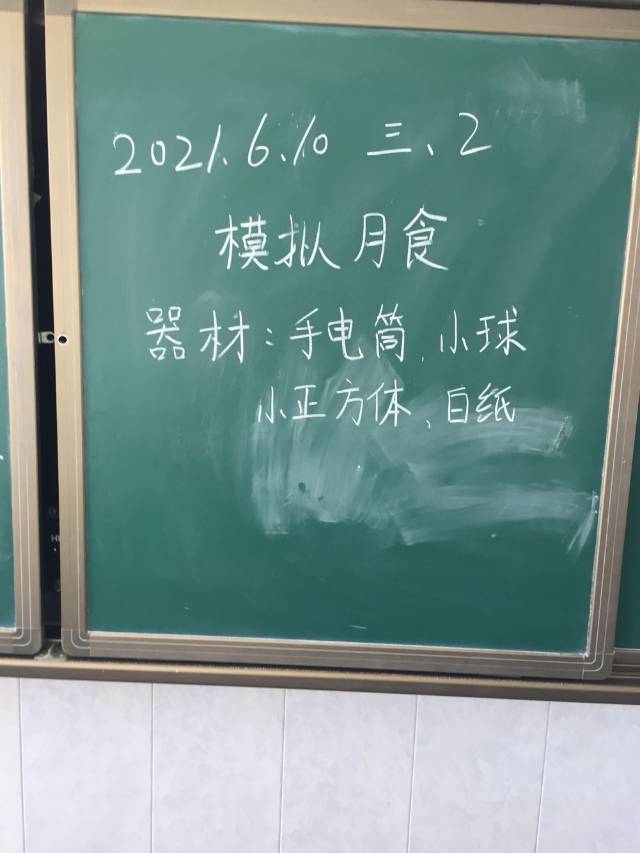 2021.6.10 三、2
模拟月食
器材:手电筒、小球
小正方体、白纸